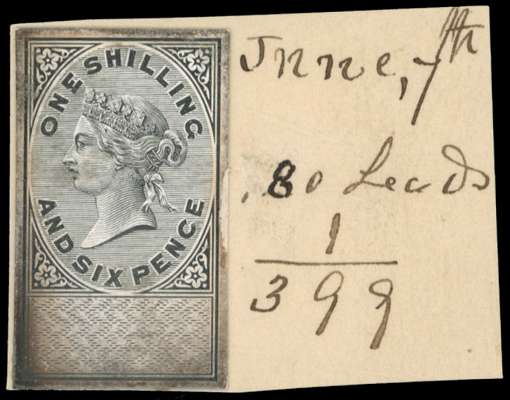 ONE SHILLING
AND SIX PENCE
June, 7th
.80 Leads
1
399